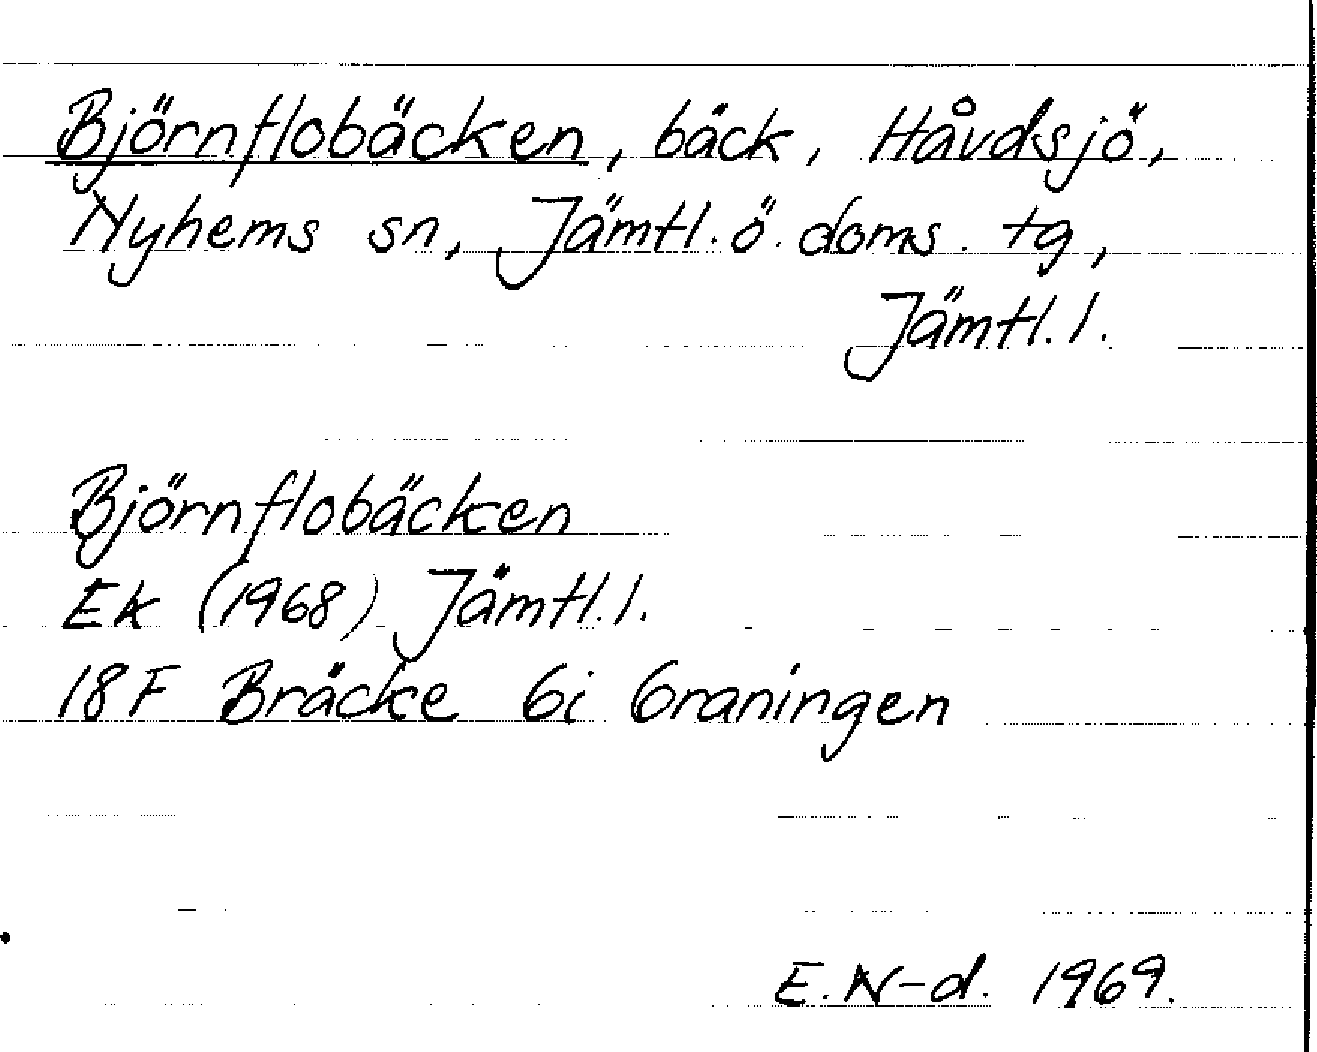 Björnflobäcken, bäck, Håvdsjö,
Nyhems sn, Jämtl. ö. doms. tg,
Jämtl. l.
Björnflobäcken
Ek (1968) Jämtl. l.
18F Bräcke 6i Graningen
E. N-d. 1969.